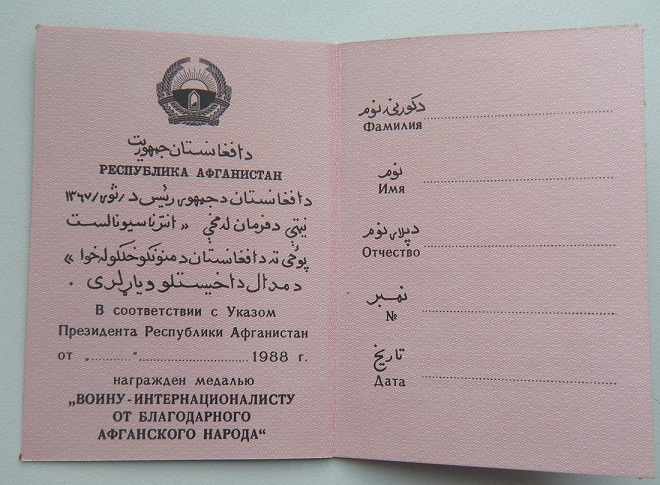 د افغانستان جمهوریت
РЕСПУБЛИКА АФГАНИСТАН
د افغانستان د جمهور رئیس د / ثور / ۱۳۶۷
نیټې د فرمان له مخې « انترناسیونالست
پوځي ته د افغانستان د منونکو خلکو له خوا »
د مدال د اخیستلو ویاړ لری .
В соответствии с Указом
Президента Республики Афганистан
от „........“........................1988 г.
награжден медалью
„ВОИНУ-ИНТЕРНАЦИОНАЛИСТУ
ОТ БЛАГОДАРНОГО
АФГАНСКОГО НАРОДА“
د کورنۍ نوم
Фамилия
نوم
Имя
د پلار نوم
Отчество
نمبر
№
تاریخ
Дата